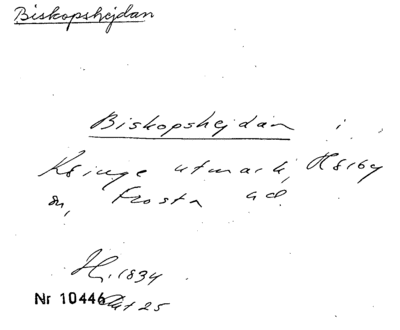 Biskopshejdan
Biskopshejdan i
Ksinge utmark, Hsiby
sn, Frosta hd
1834
Nr 10446 Akt 25